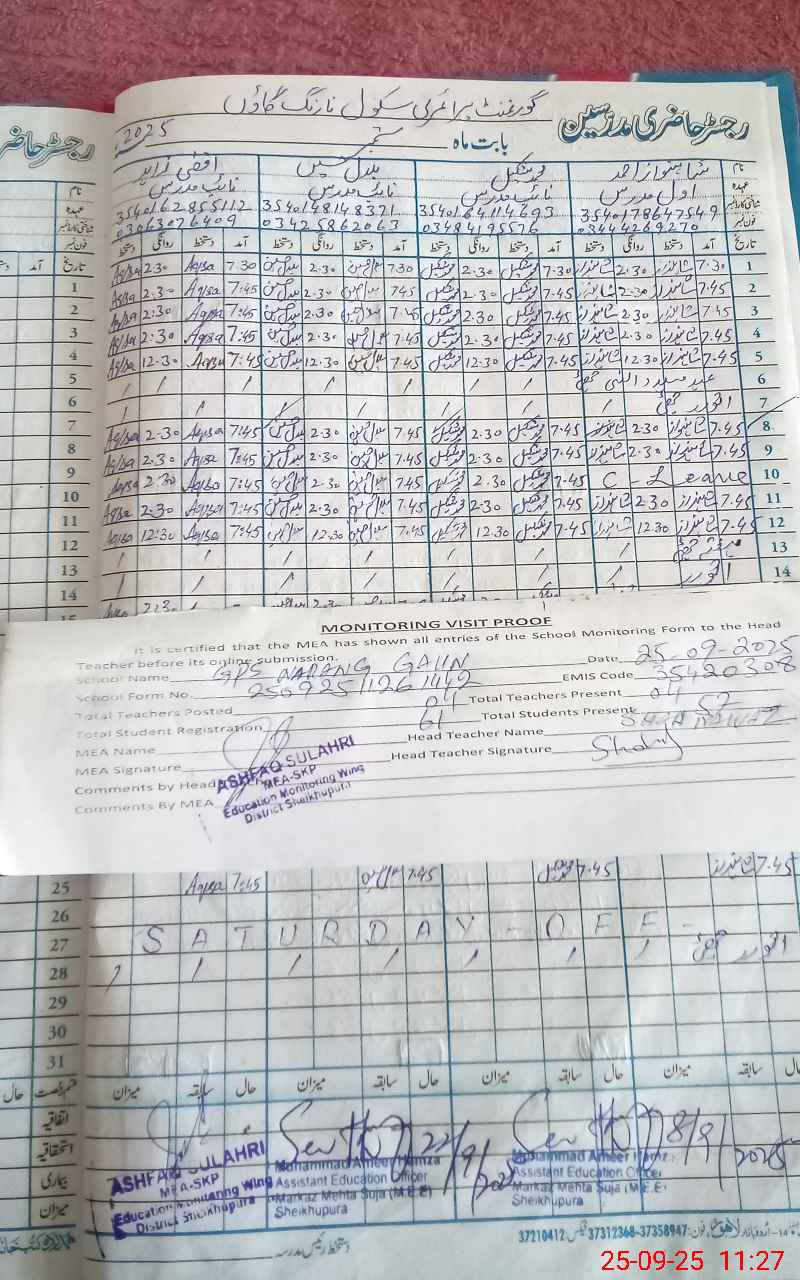 گورنمنٹ پرائمری سکول نارنگ گاؤں
رجسٹر حاضری مدرسین
بابت ماہ ستمبر 2025
نام شاہنواز احمد محمد شکیل اقصیٰ زاہد
عہدہ اول مدرس نائب مدرس نائب مدرس نائب مدرس
3540178647549 3540164114693 3540148148371 3540162855112
فون نمبر 03444269270 03484195576 03425862063 03063076409
تاریخ آمد دستخط روانگی دستخط آمد دستخط روانگی دستخط آمد دستخط روانگی دستخط آمد دستخط روانگی دستخط
1 7.30 شاہنواز 2.30 شاہنواز 7.30 محمد شکیل 2.30 محمد شکیل 7.30 2.30 7.30 Aqsa 2.30 Aqsa
2 7.45 شاہنواز 2.30 شاہنواز 7.45 محمد شکیل 2.30 محمد شکیل 7.45 2.30 7:45 Aqsa 2.30 Aqsa
3 7.45 شاہنواز 2.30 شاہنواز 7.45 محمد شکیل 2.30 محمد شکیل 7.45 2.30 7:45 Aqsa 2:30 Aqsa
4 7.45 شاہنواز 2.30 شاہنواز 7.45 محمد شکیل 2.30 محمد شکیل 7.45 2.30 7:45 Aqsa 2:30 Aqsa
5 7.45 شاہنواز 12.30 شاہنواز 7.45 محمد شکیل 12.30 محمد شکیل 7.45 12.30 7:45 Aqsa 12.30 Aqsa
6 عید میلاد النبی چھٹی / / / / / /
7 اتوار چھٹی / / / / / /
8 7.45 شاہنواز 2.30 شاہنواز 7.45 محمد شکیل 2.30 محمد شکیل 7.45 2.30 7:45 Aqsa 2.30 Aqsa
9 7.45 شاہنواز 2.30 شاہنواز 7.45 محمد شکیل 2.30 محمد شکیل 7.45 2.30 7:45 Aqsa 2.30 Aqsa
10 C - Leave 7.45 محمد شکیل 2.30 محمد شکیل 7.45 2.30 7:45 Aqsa 2:30 Aqsa
11 7.45 شاہنواز 2.30 شاہنواز 7.45 محمد شکیل 2.30 محمد شکیل 7.45 2.30 7:45 Aqsa 2:30 Aqsa
12 7.45 شاہنواز 12.30 شاہنواز 7.45 محمد شکیل 12.30 محمد شکیل 7.45 12.30 7:45 Aqsa 12:30 Aqsa
13 ہفتہ چھٹی / / / / / /
14 اتوار / / / / / /
MONITORING VISIT PROOF
It is certified that the MEA has shown all entries of the School Monitoring Form to the Head
Teacher before its online submission.
School Name GPS NARANG GAUN Date 25.09-2025
School Form No. 25092511261442 EMIS Code 35420308
Total Teachers Posted 04 Total Teachers Present 04
Total Student Registration 61 Total Students Present 57
MEA Name Head Teacher Name SHAHNAWAZ
MEA Signature Head Teacher Signature
Comments by Head
Comments By MEA
ASHFAQ SULAHRI
MEA-SKP
Education Monitoring Wing
District Sheikhupura
25 7.45 شاہنواز 7.45 محمد شکیل 7.45 7:45 Aqsa
26
27 SATURDAY - OFF -
28 اتوار چھٹی / / / / / /
29
30
31
قسم رخصت حال سابقہ میزان حال سابقہ میزان حال سابقہ میزان حال سابقہ میزان
اتفاقیہ
استحقاقیہ
بیماری
میزان
ASHFAQ SULAHRI
MEA-SKP
Education Monitoring Wing
District Sheikhupura
22/9/2025
Muhammad Ameer Hamza
Assistant Education Officer
Markaz Mehta Suja (M.E.E)
Sheikhupura
18/9/2025
Muhammad Ameer Hamza
Assistant Education Officer
Markaz Mehta Suja (M.E.E)
Sheikhupura
دستخط رئیس مدرسہ
14-اردو بازار لاہور، فون: 37358947-37312368 فیکس: 37210412
25-09-25 11:27